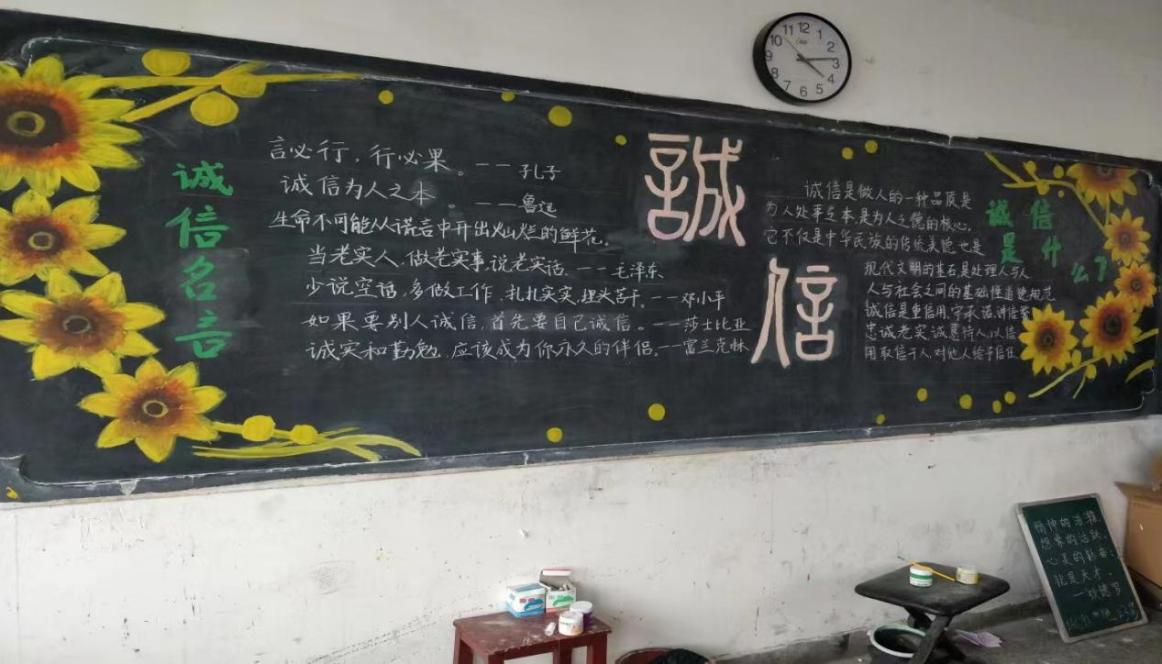 诚信名言
言必行，行必果。——孔子
诚信为人之本。——鲁迅
生命不可能从谎言中开出灿烂的鲜花。
当老实人，做老实事，说老实话。——毛泽东
少说空话，多做工作，扎扎实实，埋头苦干。——邓小平
如果要别人诚信，首先要自己诚信。——莎士比亚
诚实和勤勉，应该成为你永久的伴侣。——富兰克林
誠
信
诚信是什么？
诚信是做人的一种品质是
为人处事之本，是为人之德的核心，
它不仅是中华民族的传统美德也是
现代文明的基石是处理人与人
人与社会之间的基础性道德规范
诚信是重信用，守承诺，讲信
忠诚老实，诚恳待人，以信
用取信于人，对他人给予信任
12
1
2
3
4
5
6
7
8
9
10
11
精神的浩瀚
想象的活跃
心灵的勤奋：
就是天才。